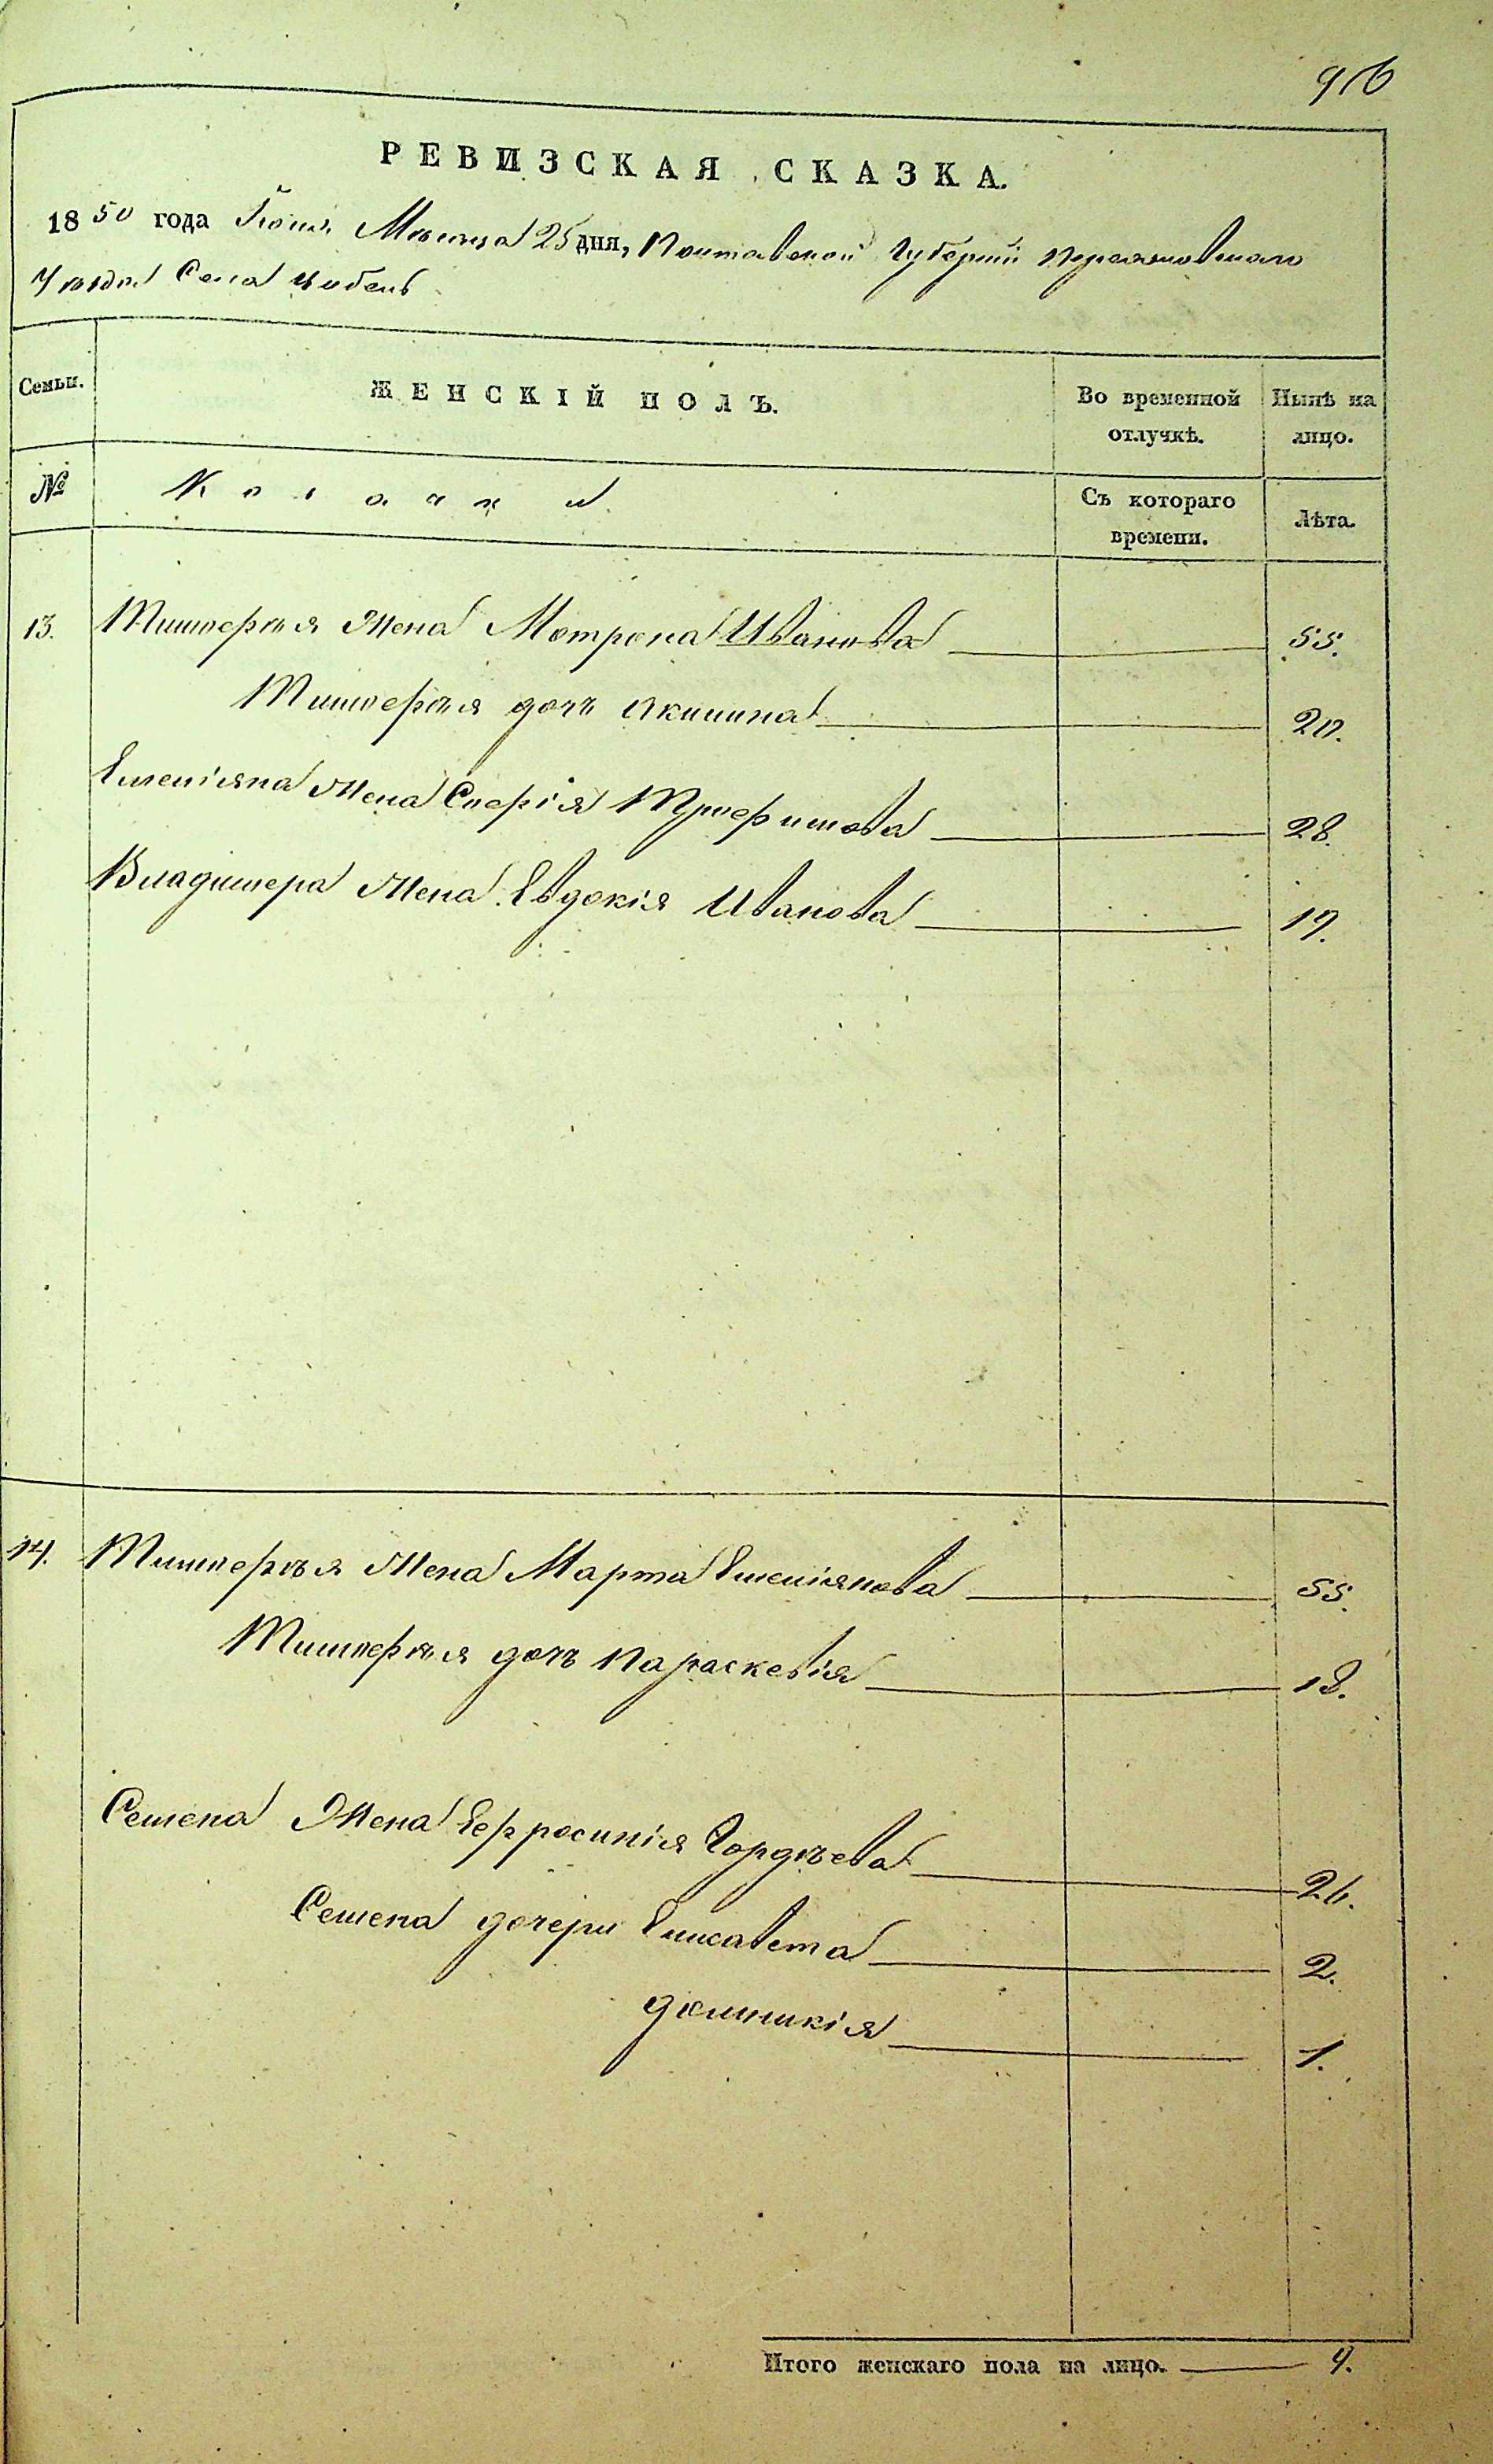 916
РЕВИЗСКАЯ СКАЗКА.
1850 года Іюня Месяца 25 дня, Полтавской Губерніи Переяславскаго
Уезда Села Цибель
Семьи.
ЖЕНСКІЙ ПОЛЪ.
Во временной отлучкѣ.
Нынѣ на лицо.
№
Козачки
Съ котораго времени.
Лѣта.
13. Тимоферея Жена Мотрона Иванова 55.
Тимоферея дочь Акилина 20.
Емеліяна Жена Соефія Троефимова 28.
Владимера Жена Евдокія Иванова 19.
14. Тимоферея Жена Марта Емеліянова 55.
Тимоферея дочь Параскевія 18.
Семена Жена Ефросинія Гордѣева 26.
Семена дочери Елисавета 2.
Доминикія 1.
Итого женскаго пола на лицо. 9.